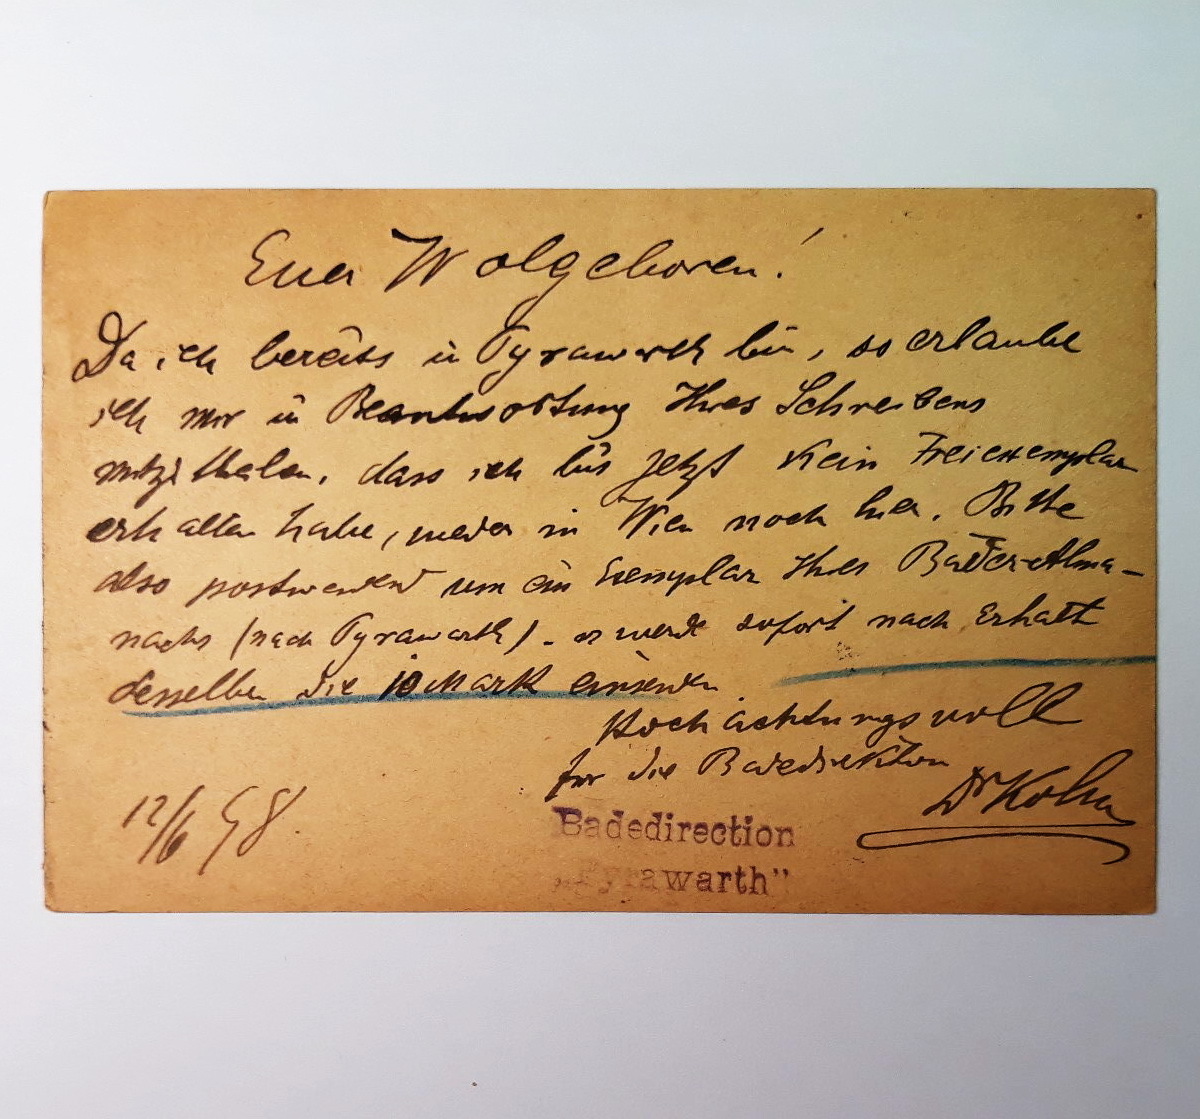 Euer Wolgeboren!
Da ich bereits in Pyrawarth bin, so erlaube
ich mir in Beantwortung Ihres Schreibens
mitzutheilen, dass ich bis jetzt kein Freiexemplar
erhalten habe, weder in Wien noch hier. Bitte
also postwendend um ein Exemplar Ihres Bäder-Alma-
nachs (nach Pyrawarth). - es werde sofort nach Erhalt
desselben die 10 Mark einsenden.
Hochachtungsvoll
für die Badedirektion
Dr Kohn
12/6 98
Badedirection
„Pyrawarth”